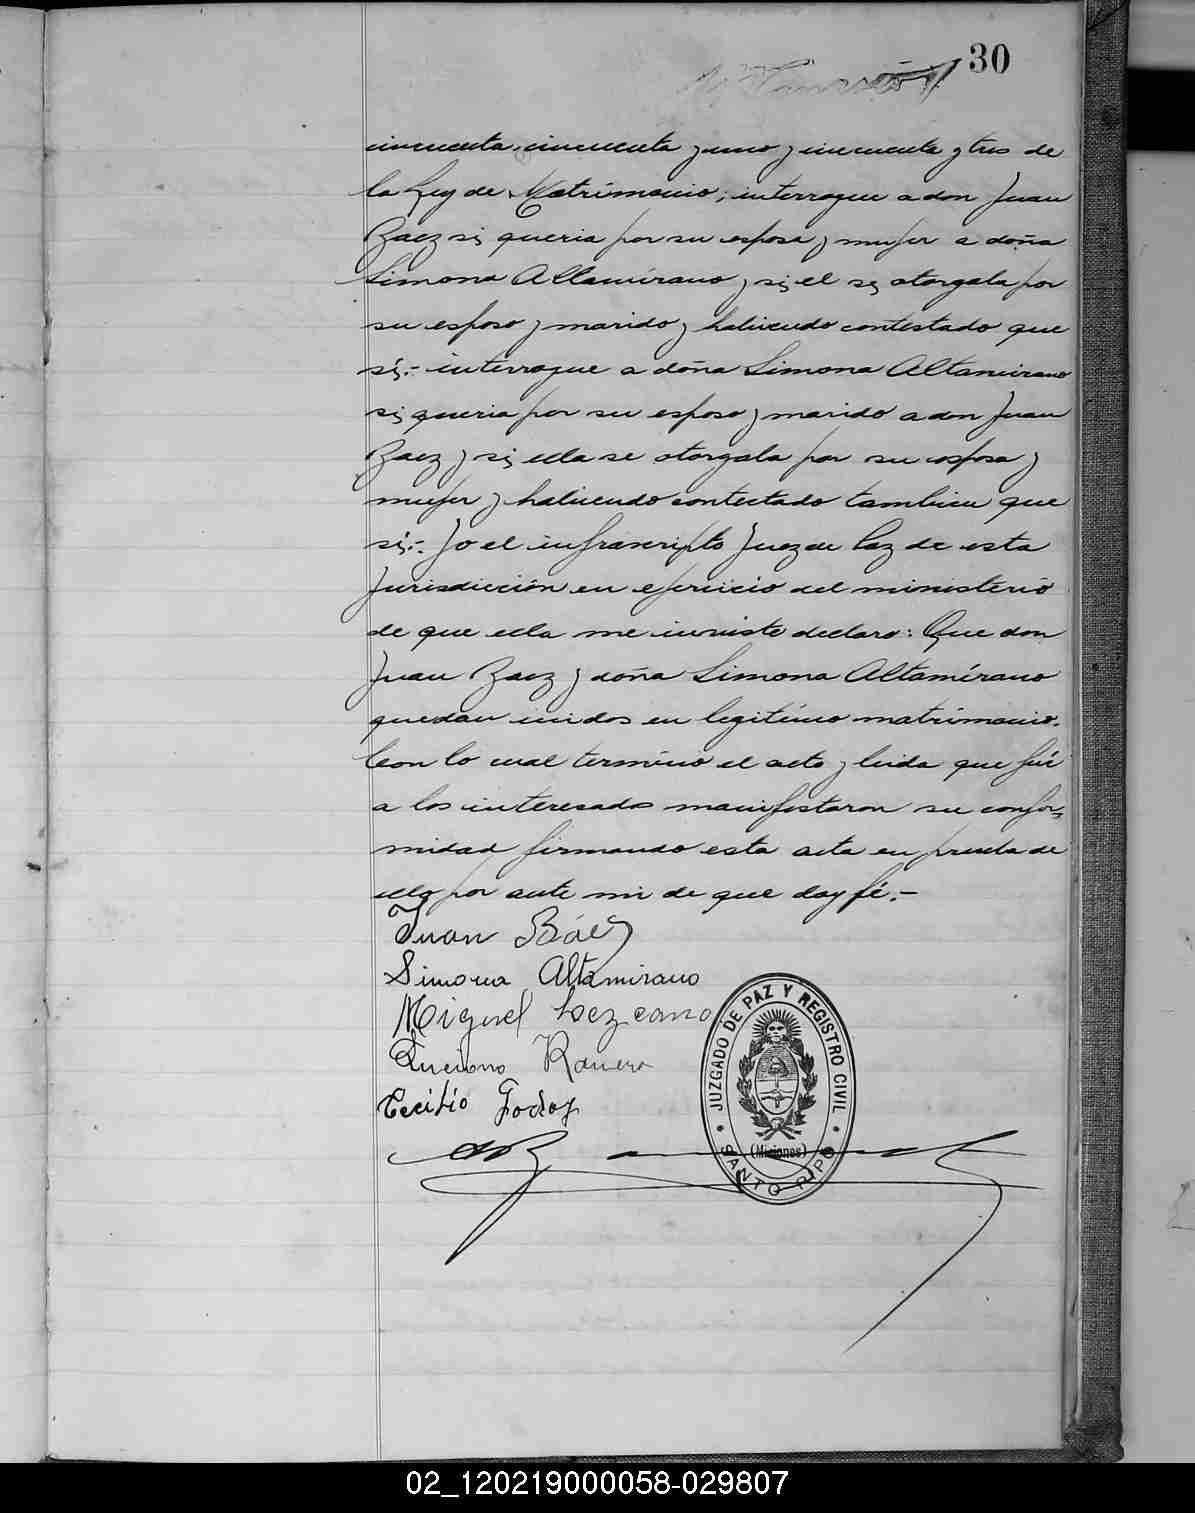 30
cincuenta, cincuenta y uno y cincuenta y tres de
la Ley de Matrimonio; interrogue a don Juan
Baez si queria por su esposa y mujer a doña
Simona Altamirano y si el se otorgaba por
su esposo y marido y habiendo contestado que
si.- interrogue a doña Simona Altamirano
si queria por su esposo y marido a don Juan
Baez y si ella se otorgaba por su esposa y
mujer y habiendo contestado tambien que
si.- Yo el infrascripto Juez de Paz de esta
Jurisdicción en ejercicio del ministerio
de que ella me inviste declaro: Que don
Juan Baez y doña Simona Altamirano
quedan unidos en legitimo matrimonio.
Con lo cual terminó el acto y leida que fué
a los interesados manifestaron su confor-
midad firmando esta acta en prueba de
ello por ante mi de que doy fé.-
Juan Báez
Simona Altamirano
Miguel Lezcano
Luciano
Cecilio Godoy
JUZGADO DE PAZ Y REGISTRO CIVIL
(Misiones)
SANTO PIPO
02_120219000058-029807